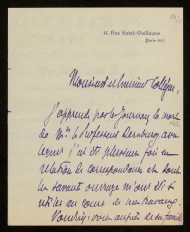 14 Rue Saint-Guillaume
Paris VIIe
Monsieur et éminent Collègue,
J'apprends par le Journal la mort
de M. le Professeur Derenbourg avec
lequel j'ai été plusieurs fois en
relation de correspondance et dont
les savants ouvrages m'ont été si
utiles au cours de mes travaux.
Voudriez-vous auprès de sa famille